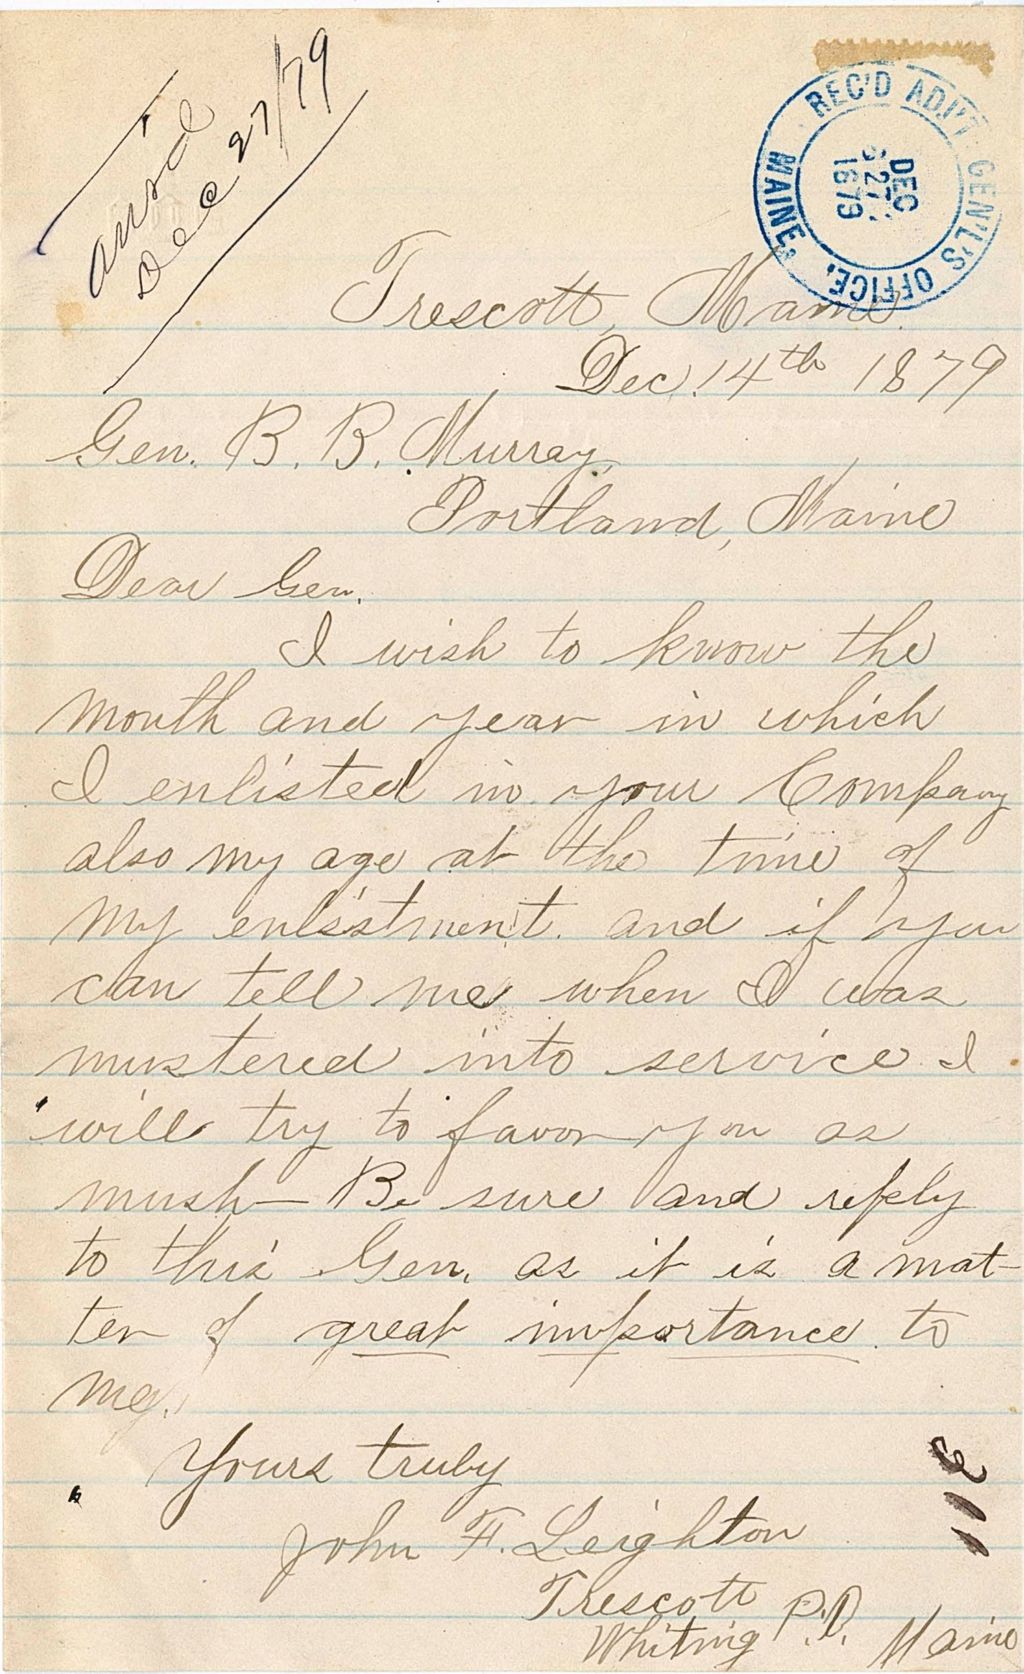 ansd
Dec 27/79
REC'D ADJ'T GEN'L'S OFFICE, MAINE,
DEC
27
1879
Trescott, Maine.
Dec. 14th 1879
Gen. B. B. Murray,
Portland, Maine
Dear Gen.
I wish to know the
month and year in which
I enlisted in your Company
also my age at the time of
my enlistment. and if you
can tell me when I was
mustered into service I
will try to favor you as
mush— Be sure and reply
to this Gen, as it is a mat-
ter of great importance to
me.
Yours truly
John F. Leighton
Trescott
Whiting P.O. Maine